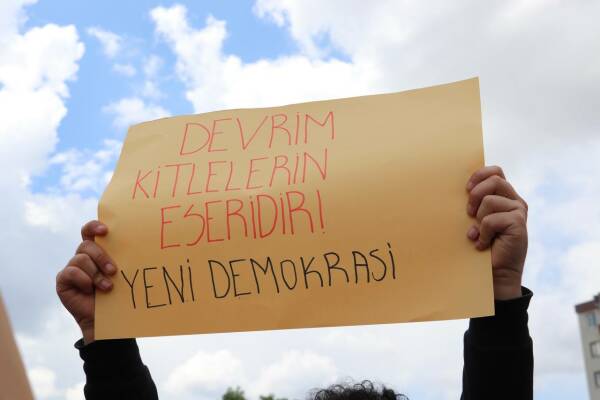 DEVRİM
KİTLELERİN
ESERİDİR!
YENİ DEMOKRASİ